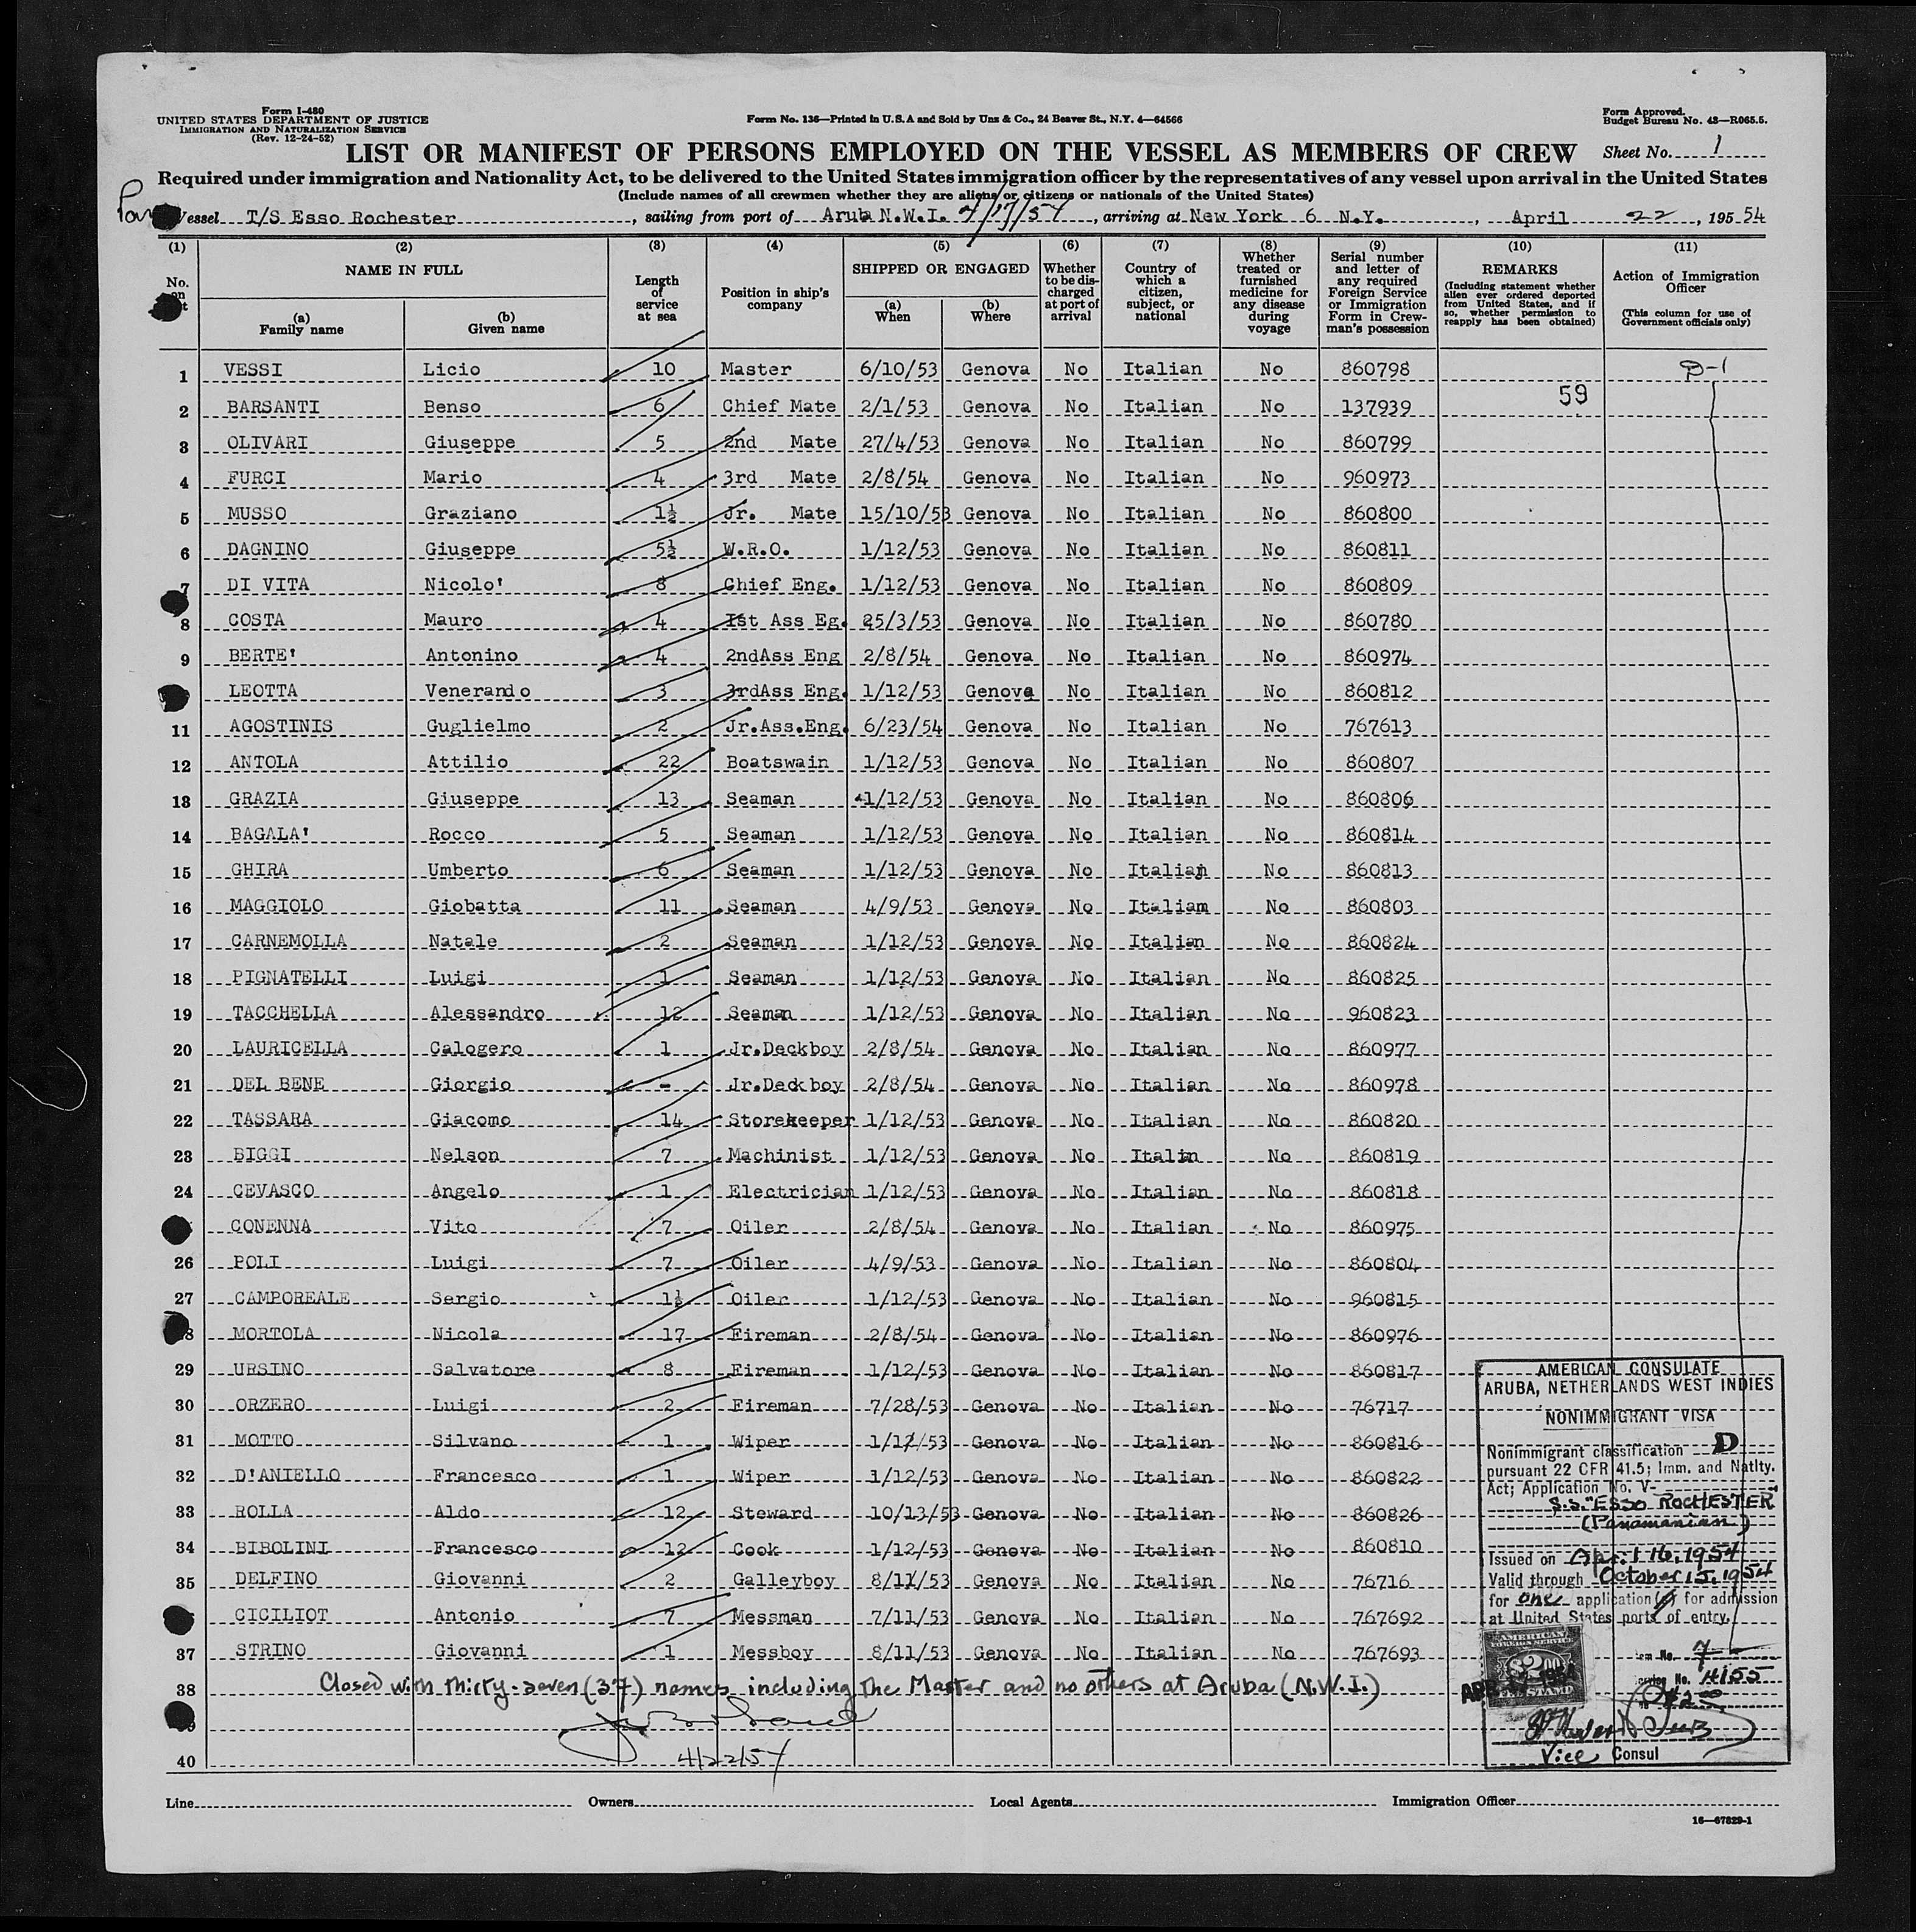 Form I-480
UNITED STATES DEPARTMENT OF JUSTICE
IMMIGRATION AND NATURALIZATION SERVICE
(Rev. 12-24-52)
Form No. 136—Printed in U.S.A and Sold by Unz & Co., 24 Beaver St., N.Y. 4—64566
Form Approved.
Budget Bureau No. 43—R065.5.
LIST OR MANIFEST OF PERSONS EMPLOYED ON THE VESSEL AS MEMBERS OF CREW
Sheet No. 1
Required under immigration and Nationality Act, to be delivered to the United States immigration officer by the representatives of any vessel upon arrival in the United States
(Include names of all crewmen whether they are aliens or citizens or nationals of the United States)
Pan Vessel T/S Esso Rochester, sailing from port of Aruba N.W.I. 4/17/54, arriving at New York 6 N.Y., April 22, 195 54
(1) (2) (3) (4) (5) (6) (7) (8) (9) (10) (11)
No. on
NAME IN FULL
(a) Family name
(b) Given name
Length of service at sea
Position in ship's company
SHIPPED OR ENGAGED
(a) When
(b) Where
Whether to be discharged at port of arrival
Country of which a citizen, subject, or national
Whether treated or furnished medicine for any disease during voyage
Serial number and letter of any required Foreign Service or Immigration Form in Crewman's possession
REMARKS
(Including statement whether alien ever ordered deported from United States, and if so, whether permission to reapply has been obtained)
Action of Immigration Officer
(This column for use of Government officials only)
1 VESSI Licio 10 Master 6/10/53 Genova No Italian No 860798 D-1
59
2 BARSANTI Benso 6 Chief Mate 2/1/53 Genova No Italian No 137939
3 OLIVARI Giuseppe 5 2nd Mate 27/4/53 Genova No Italian No 860799
4 FURCI Mario 4 3rd Mate 2/8/54 Genova No Italian No 960973
5 MUSSO Graziano 1½ Jr. Mate 15/10/53 Genova No Italian No 860800
6 DAGNINO Giuseppe 5½ W.R.O. 1/12/53 Genova No Italian No 860811
7 DI VITA Nicolo' 8 Chief Eng. 1/12/53 Genova No Italian No 860809
8 COSTA Mauro 4 Ist Ass Eg. 25/3/53 Genova No Italian No 860780
9 BERTE' Antonino 4 2ndAss Eng 2/8/54 Genova No Italian No 860974
LEOTTA Venerando 3 3rdAss Eng. 1/12/53 Genova No Italian No 860812
11 AGOSTINIS Guglielmo 2 Jr.Ass.Eng. 6/23/54 Genova No Italian No 767613
12 ANTOLA Attilio 22 Boatswain 1/12/53 Genova No Italian No 860807
13 GRAZIA Giuseppe 13 Seaman 1/12/53 Genova No Italian No 860806
14 BAGALA' Rocco 5 Seaman 1/12/53 Genova No Italian No 860814
15 GHIRA Umberto 6 Seaman 1/12/53 Genova No Italian No 860813
16 MAGGIOLO Giobatta 11 Seaman 4/9/53 Genova No Italiam No 860803
17 CARNEMOLLA Natale 2 Seaman 1/12/53 Genova No Italian No 860824
18 PIGNATELLI Luigi 1 Seaman 1/12/53 Genova No Italian No 860825
19 TACCHELLA Alessandro 12 Seaman 1/12/53 Genova No Italian No 960823
20 LAURICELLA Calogero 1 Jr.Deckboy 2/8/54 Genova No Italian No 860977
21 DEL BENE Giorgio - Jr.Deckboy 2/8/54 Genova No Italian No 860978
22 TASSARA Giacomo 14 Storekeeper 1/12/53 Genova No Italian No 860820
23 BIGGI Nelson 7 Machinist 1/12/53 Genova No Italin No 860819
24 CEVASCO Angelo 1 Electrician 1/12/53 Genova No Italian No 860818
CONENNA Vito 7 Oiler 2/8/54 Genova No Italian No 860975
26 POLI Luigi 7 Oiler 4/9/53 Genova No Italian No 860804
27 CAMPOREALE Sergio 1½ Oiler 1/12/53 Genova No Italian No 960815
28 MORTOLA Nicola 17 Fireman 2/8/54 Genova No Italian No 860976
29 URSINO Salvatore 8 Fireman 1/12/53 Genova No Italian No 860817
30 ORZERO Luigi 2 Fireman 7/28/53 Genova No Italian No 76717
31 MOTTO Silvano 1 Wiper 1/12/53 Genova No Italian No 860816
32 D'ANIELLO Francesco 1 Wiper 1/12/53 Genova No Italian No 860822
33 ROLLA Aldo 12 Steward 10/13/53 Genova No Italian No 860826
34 BIBOLINI Francesco 12 Cook 1/12/53 Genova No Italian No 860810
35 DELFINO Giovanni 2 Galleyboy 8/11/53 Genova No Italian No 76716
CICILIOT Antonio 7 Messman 7/11/53 Genova No Italian No 767692
37 STRINO Giovanni 1 Messboy 8/11/53 Genova No Italian No 767693
38 Closed with thirty-seven (37) names including the Master and no others at Aruba (N.W.I.)
40 4/22/54
AMERICAN CONSULATE
ARUBA, NETHERLANDS WEST INDIES
NONIMMIGRANT VISA
Nonimmigrant classification D
pursuant 22 CFR 41.5; Imm. and Natlty.
Act; Application No. V-
S.S. "ESSO ROCHESTER
(Panamanian)
Issued on April 16, 1954
Valid through October 15, 1954
for one application(s) for admission
at United States ports of entry.
AMERICAN
FOREIGN SERVICE
$2.00
FEE STAMP
Item No. 7
Service No. 4155
Vice Consul
Line Owners Local Agents Immigration Officer
16—67829-1